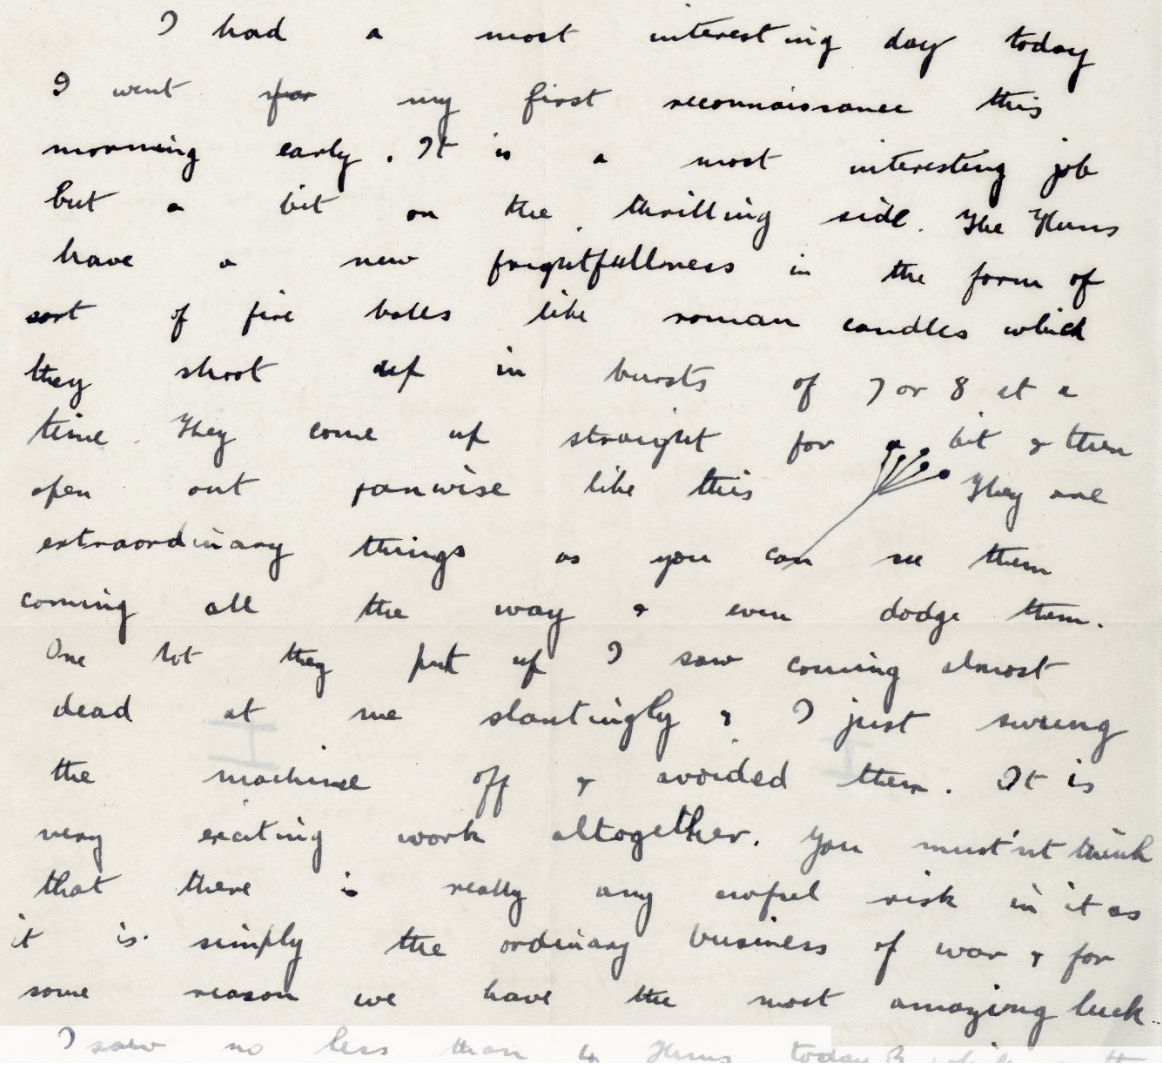 I had a most interesting day today
I went for my first reconnaissance this
morning early. It is a most interesting job
but a bit on the thrilling side. The Huns
have a new frightfullness in the form of
sort of fire balls like roman candles which
they shoot up in bursts of 7 or 8 at a
time. They come up straight for a bit & then
open out fanwise like this They are
extraordinary things as you can see them
coming all the way & even dodge them.
One lot they put up I saw coming almost
dead at me slantingly & I just swung
the machine off & avoided them. It is
very exciting work altogether. You must'nt think
that there is really any awful risk in it as
it is simply the ordinary business of war & for
some reason we have the most amazing luck.
I saw no less than 4 Huns today